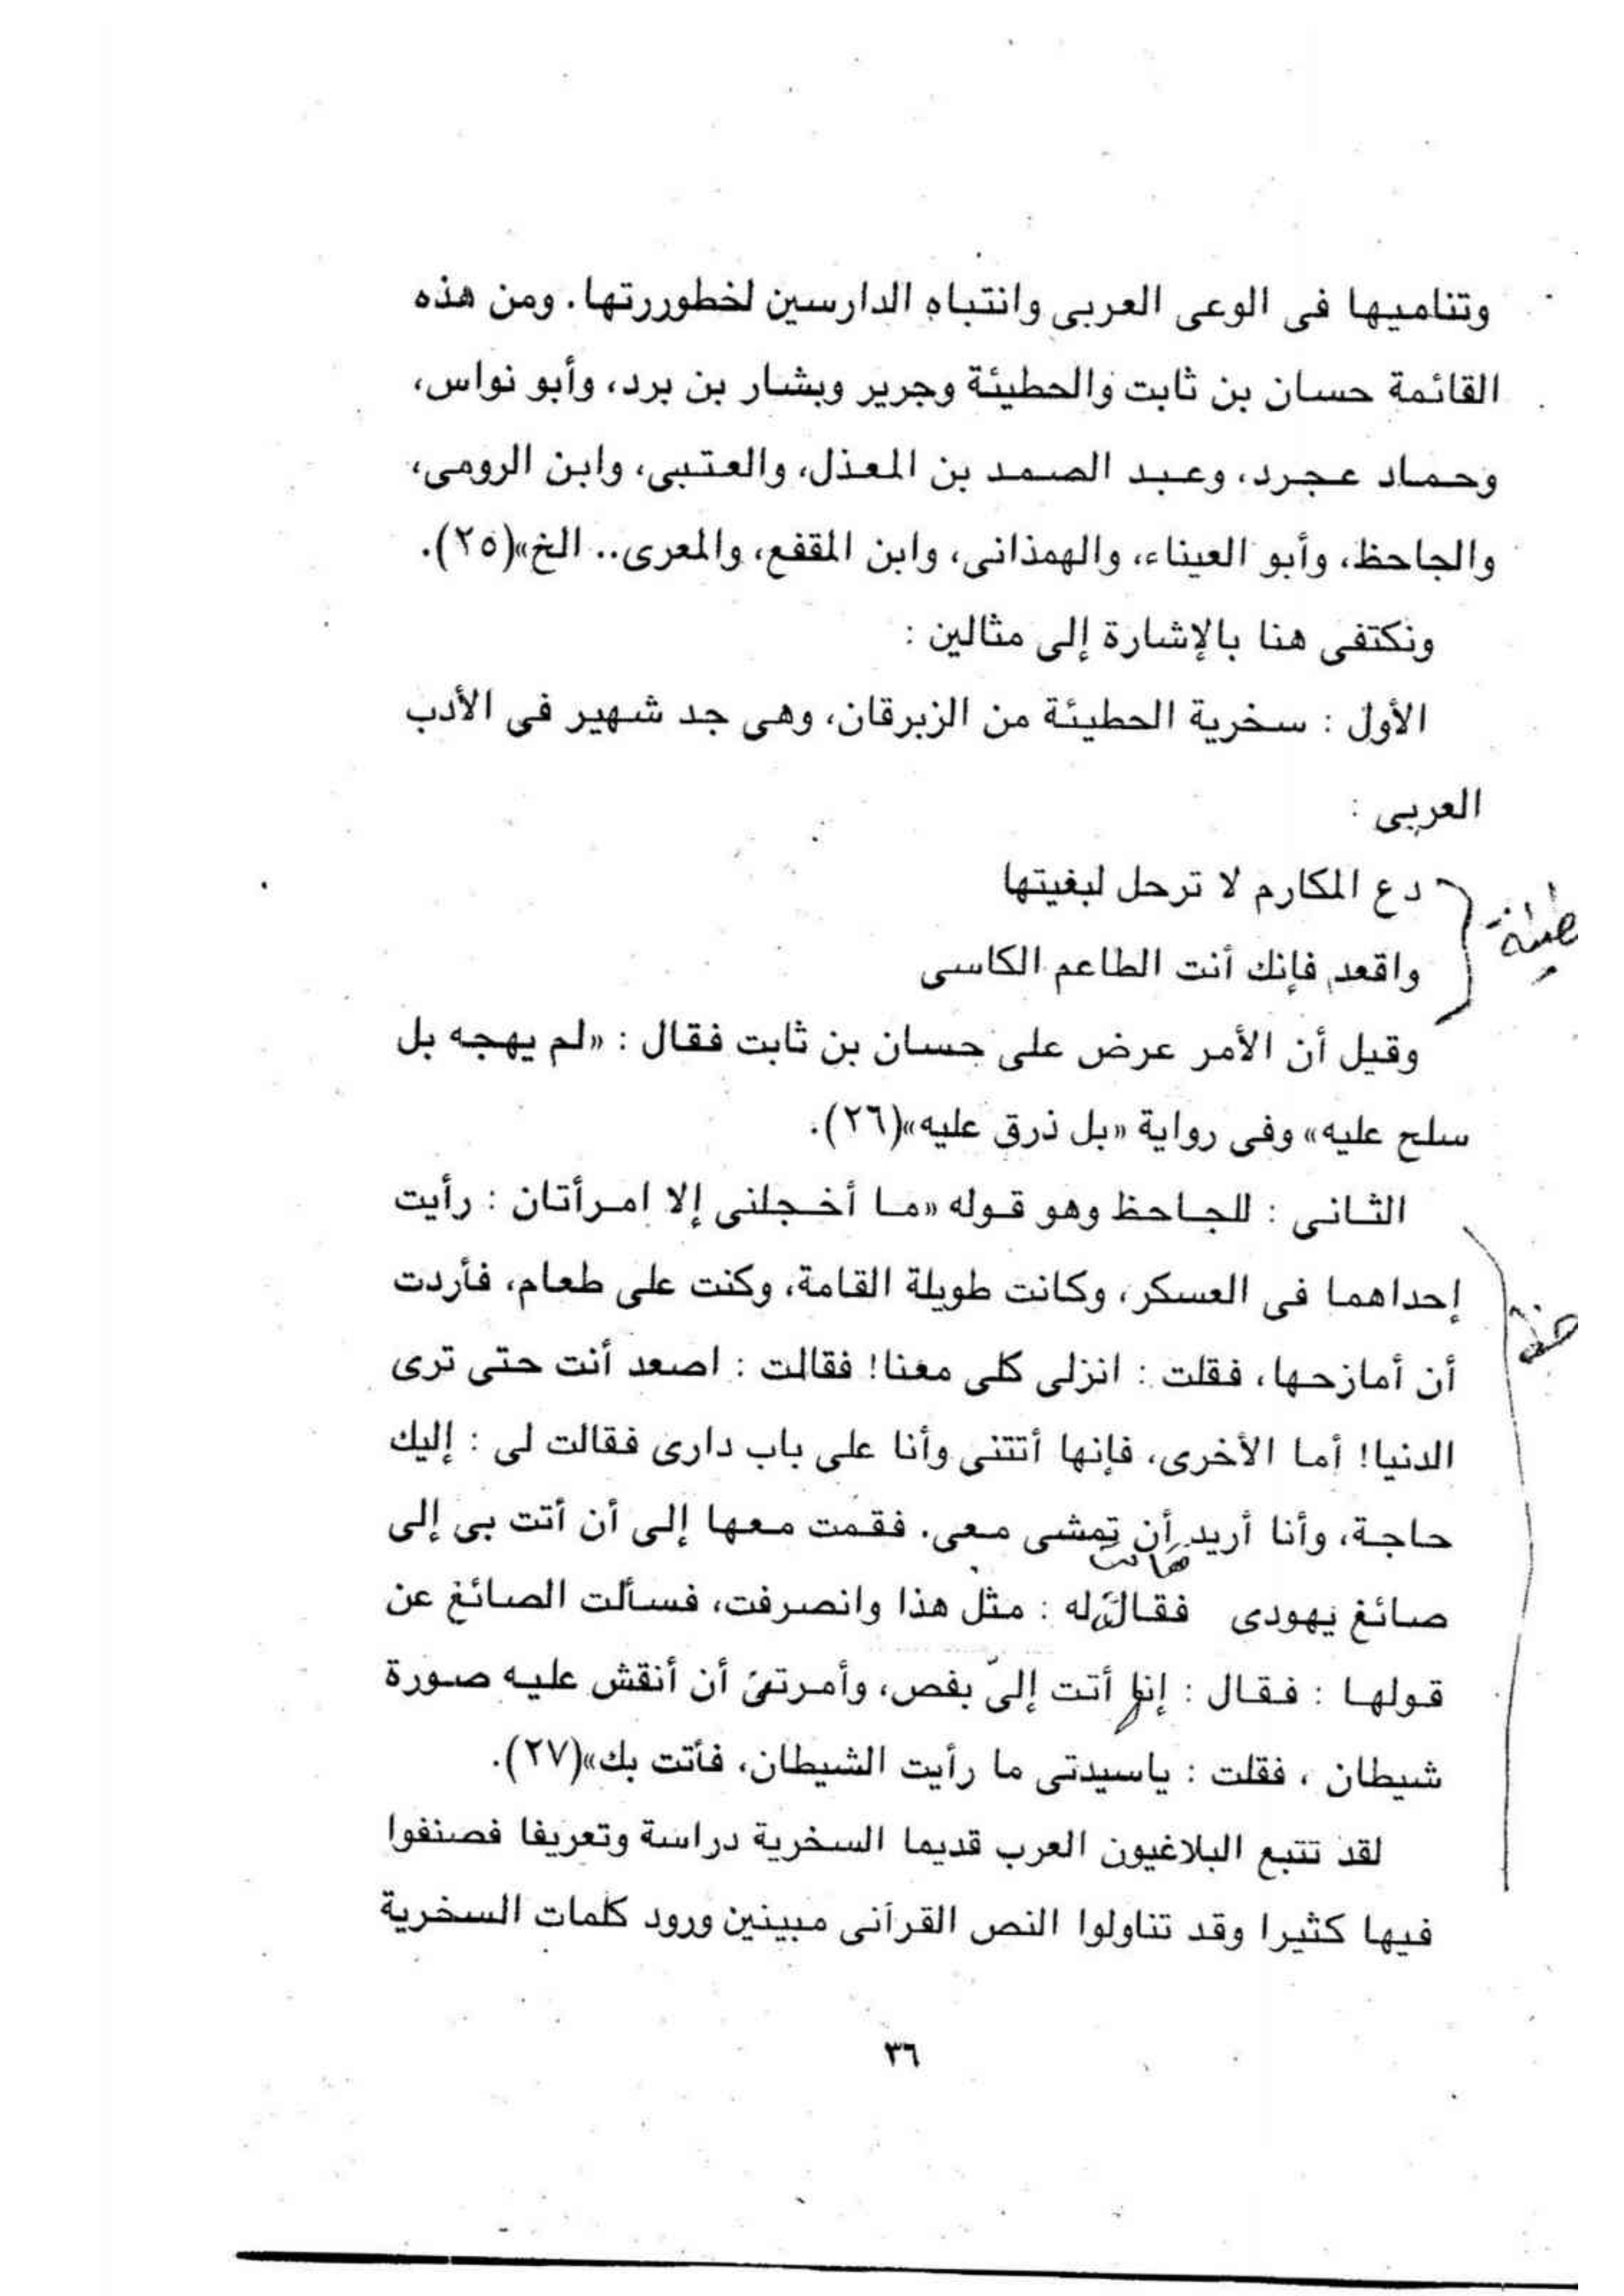 وتناميها فى الوعى العربى وانتباه الدارسين لخطوررتها. ومن هذه
القائمة حسان بن ثابت والحطيئة وجرير وبشار بن برد، وأبو نواس،
وحماد عجرد، وعبد الصمد بن المعذل، والعتبى، وابن الرومى،
والجاحظ، وأبو العيناء، والهمذانى، وابن المقفع، والمعرى.. الخ»(٢٥).
ونكتفى هنا بالإشارة إلى مثالين :
الأول : سخرية الحطيئة من الزبرقان، وهى جد شهير فى الأدب
العربى :
دع المكارم لا ترحل لبغيتها
واقعد فإنك أنت الطاعم الكاسى
وقيل أن الأمر عرض على حسان بن ثابت فقال : «لم يهجه بل
سلح عليه» وفى رواية «بل ذرق عليه»(٢٦).
الثانى : للجاحظ وهو قوله «ما أخجلنى إلا امرأتان : رأيت
إحداهما فى العسكر، وكانت طويلة القامة، وكنت على طعام، فأردت
أن أمازحها، فقلت : انزلى كلى معنا! فقالت : اصعد أنت حتى ترى
الدنيا! أما الأخرى، فإنها أتتنى وأنا على باب دارى فقالت لى : إليك
حاجة، وأنا أريد أن تمشى معى. فقمت معها إلى أن أتت بى إلى
صائغ يهودى فقالت له : مثل هذا وانصرفت، فسألت الصائغ عن
قولها : فقال : إنها أتت إلىّ بفص، وأمرتنى أن أنقش عليه صورة
شيطان ، فقلت : ياسيدتى ما رأيت الشيطان، فأتت بك»(٢٧).
لقد تتبع البلاغيون العرب قديما السخرية دراسة وتعريفا فصنفوا
فيها كثيرا وقد تناولوا النص القرآنى مبينين ورود كلمات السخرية
٣٦